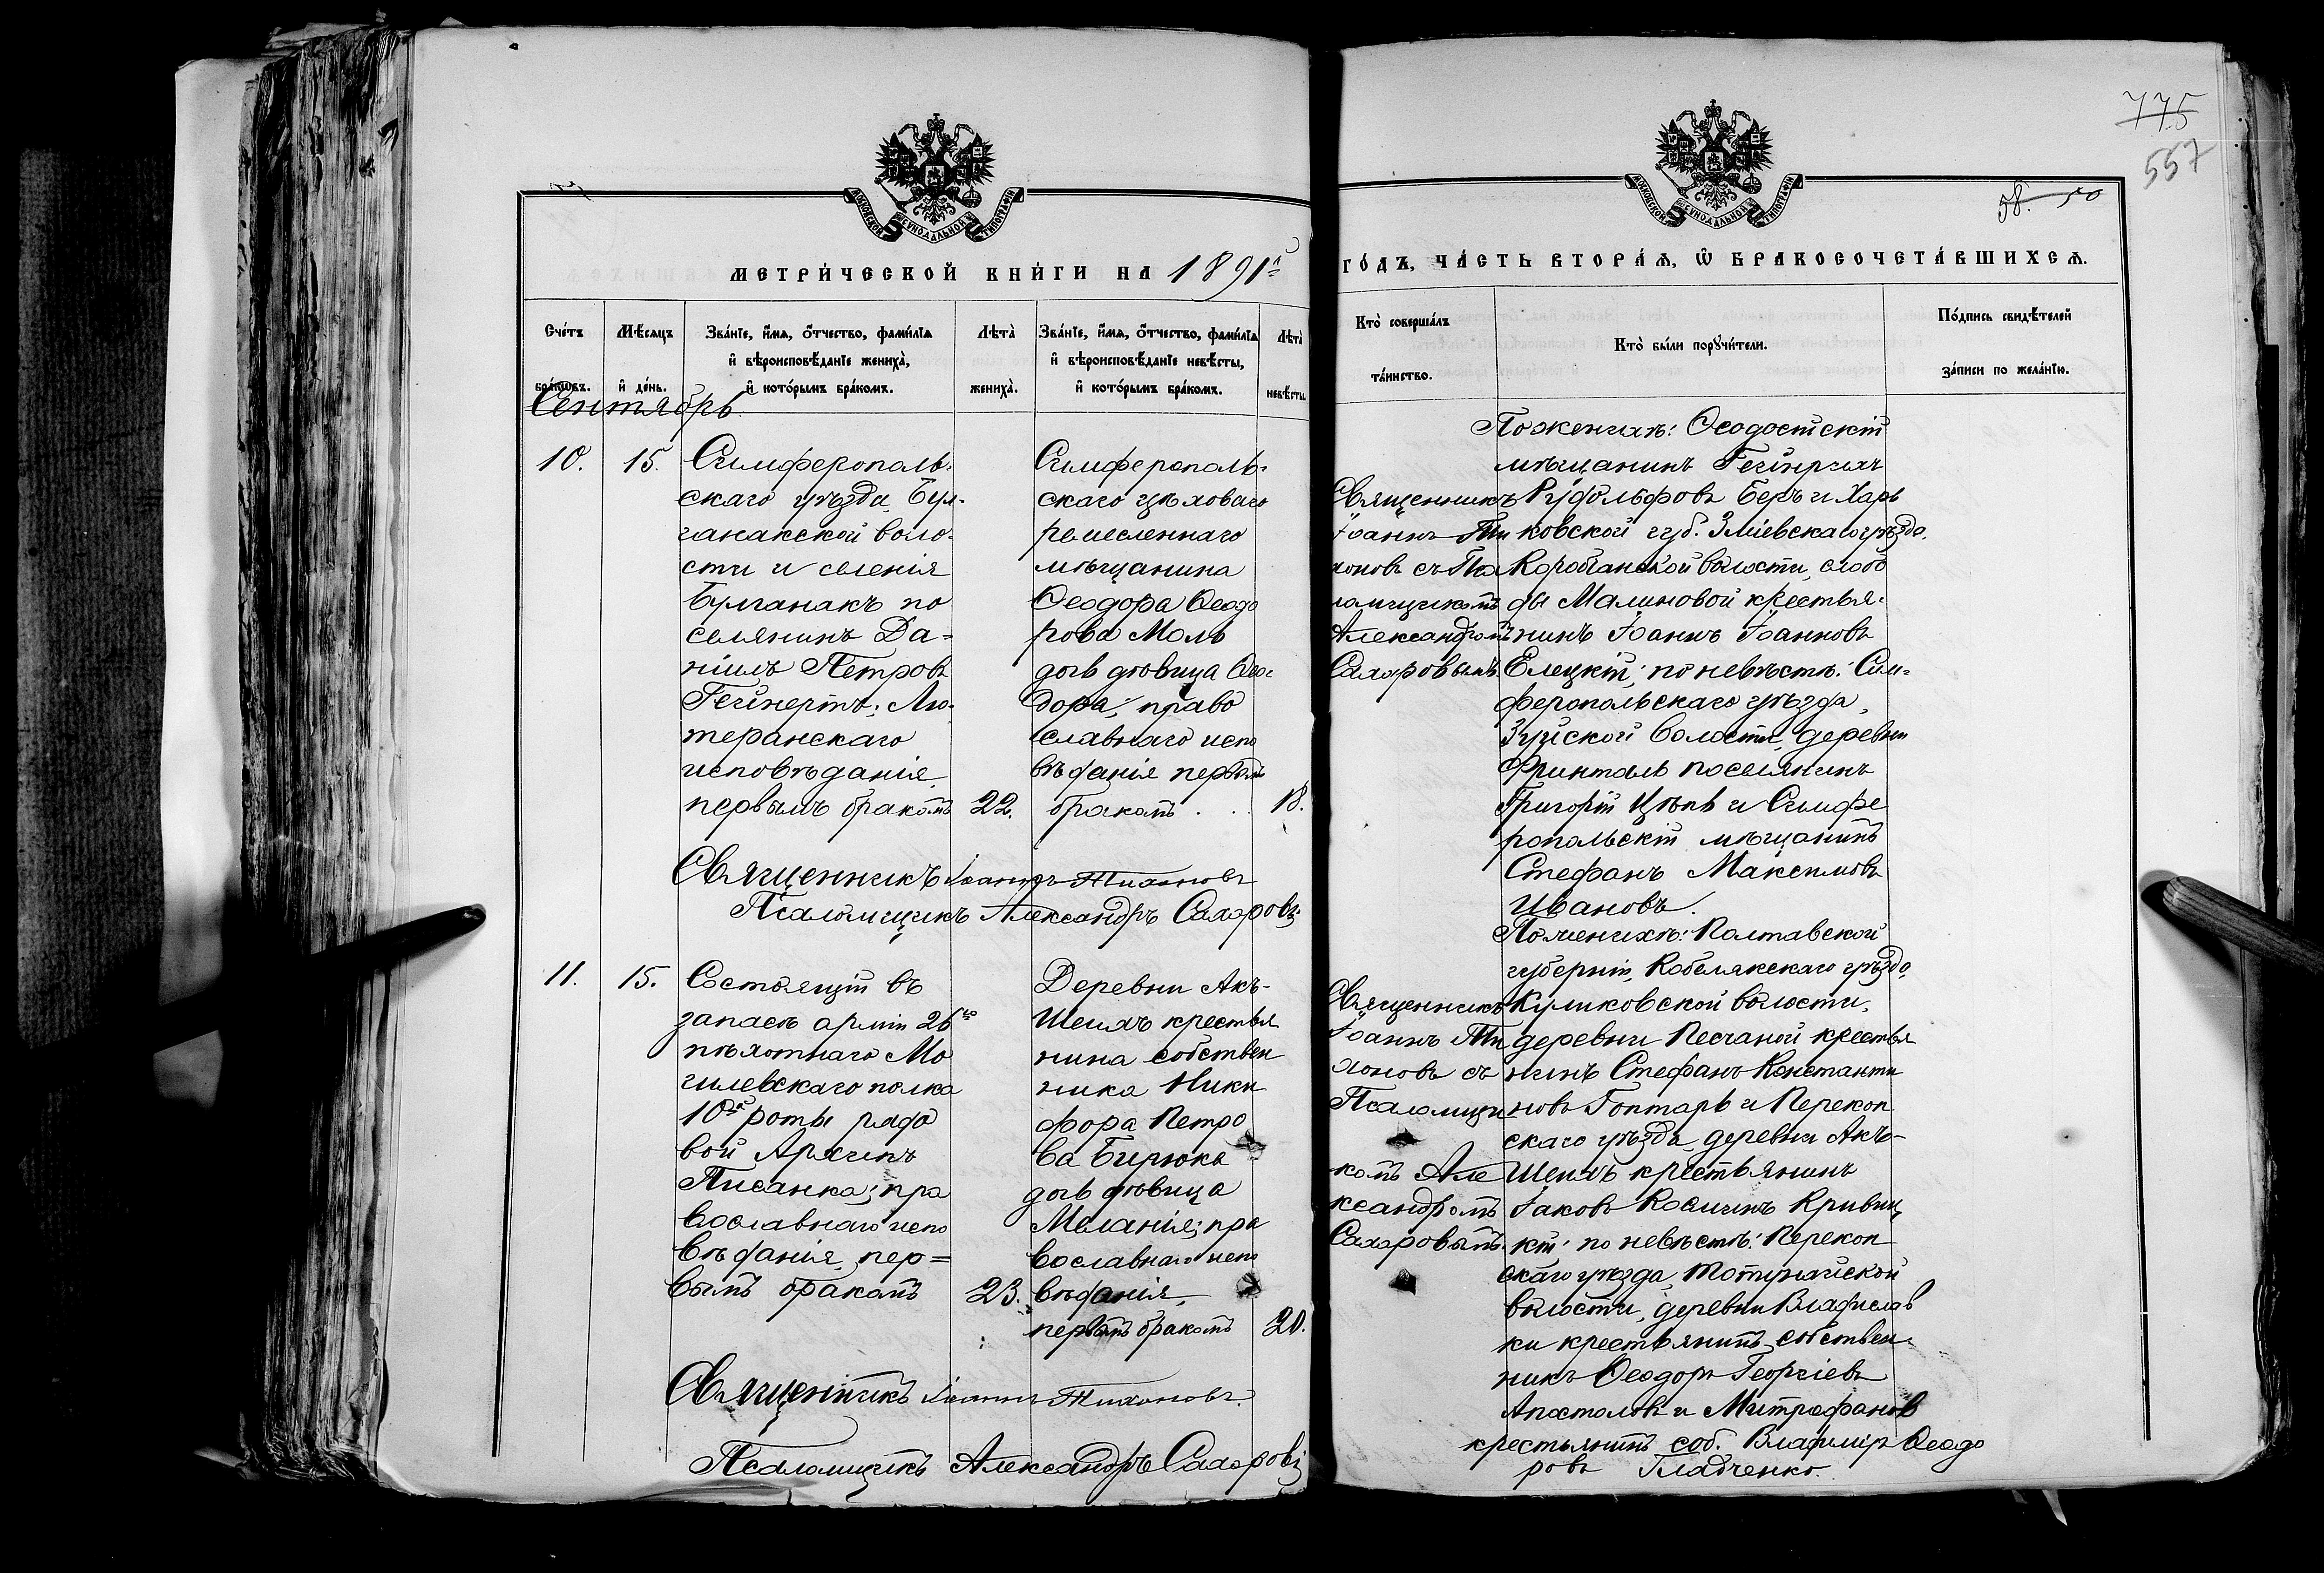 775
557
58. 50
МОСКОВСКОЙ СѴНОДАЛЬНОЙ ТИПОГРАФІИ
МОСКОВСКОЙ СѴНОДАЛЬНОЙ ТИПОГРАФІИ
МЕТРИ́ЧЕСКОЙ КНИ́ГИ НА 1891й
ГО́ДЪ, ЧА́СТЬ ВТОРА́Ѧ, Ѿ БРАКОСОЧЕТА́ВШИХСѦ.
Сче́тъ бра́кѡвъ.
Мѣ́сѧцъ и҆ де́нь.
Зва́нїе, и҆́мѧ, ѻ҆́тчество, фами́лїѧ
и҆ вѣроисповѣ́данїе жениха̀,
и҆ кото́рымъ бра́комъ.
Лѣта̀ жениха̀.
Зва́нїе, и҆́мѧ, ѻ҆́тчество, фами́лїѧ
и҆ вѣроисповѣ́данїе невѣ́сты,
и҆ кото́рымъ бра́комъ.
Лѣта̀ невѣ́сты.
Кто̀ соверша́лъ та́инство.
Кто̀ бы́ли порꙋчи́тели.
По́дпись свидѣ́телей
за́писи по жела́нїю.
Сентябрь
10.
15.
Симферополь-
скаго уѣзда, Бул-
ганакской воло-
сти и селенія
Булганакъ по
селянинъ Да=
ніилъ Петровъ
Гейнертъ; Лю-
теранскаго
исповѣданія
первымъ бракомъ
22.
Симферополь-
скаго цѣховаго
ремесленнаго
мѣщанина
Ѳеодора Ѳеодо
рова Моль
дочь дѣвица Ѳео-
дора; право
славнаго испо
вѣданія первымъ
бракомъ . .
18.
Священникъ
Іоаннъ Ти
хоновъ съ Пса
ломщикомъ
Александромъ
Сахаровымъ
По женихѣ: Ѳеодосійскій
мѣщанинъ Гейнрихъ
Рудольфовъ Беръ и Харь
ковской губ. Зміевскаго уѣзда,
Коробчанской волости, слобо
ды Малиновой крестья-
нинъ Іоаннъ Іоанновъ
Елецкій; по невѣстѣ: Сим-
феропольскаго уѣзда,
Зуйской волости, деревни
Фринталь поселянинъ
Григорій Цѣпъ и Симфе
ропольскій мѣщанинъ
Стефанъ Максимовъ
Ивановъ.
Священникъ Іоаннъ Тихоновъ
Псаломщикъ Александръ Сахаровъ
11.
15.
Состоящій въ
запасѣ арміи 26го
пѣхотнаго Мо
гилевскаго полка
10й роты рядо
вой Архипъ
Писанка; пра
вославнаго испо
вѣданія, пер=
вымъ бракомъ
23.
Деревни Акъ-
Шеихъ крестья
нина собствен
ника Ники
фора Петро
ва Бирюка
дочь дѣвица
Меланія; пра
вославнаго испо
вѣданія,
первымъ бракомъ
20.
Священникъ
Іоаннъ Ти
хоновъ съ
Псаломщи
комъ Але
ксандромъ
Сахаровымъ.
По женихѣ: Полтавской
губерніи, Кобелякскаго уѣзда,
Куликовской волости,
деревни Песчаной крестья
нинъ Стефанъ Константи
новъ Гонтарь и Перекоп
скаго уѣзда деревни Акъ-
Шеихъ крестьянинъ
Іаковъ Косминъ Кривиц
кій; по невѣстѣ: Перекоп
скаго уѣзда,
волости, деревни Владислав
ки крестьянинъ собствен-
никъ Ѳеодоръ Георгіевъ
Апостоловъ и Митрофановъ
крестьянинъ соб. Владиміръ Ѳеодо
ровъ Гладченко.
Священникъ Іоаннъ Тихоновъ.
Псаломщикъ Александръ Сахаровъ